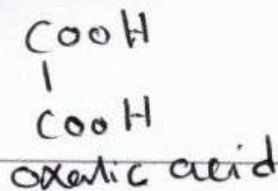 COOH
|
COOH
oxalic acid